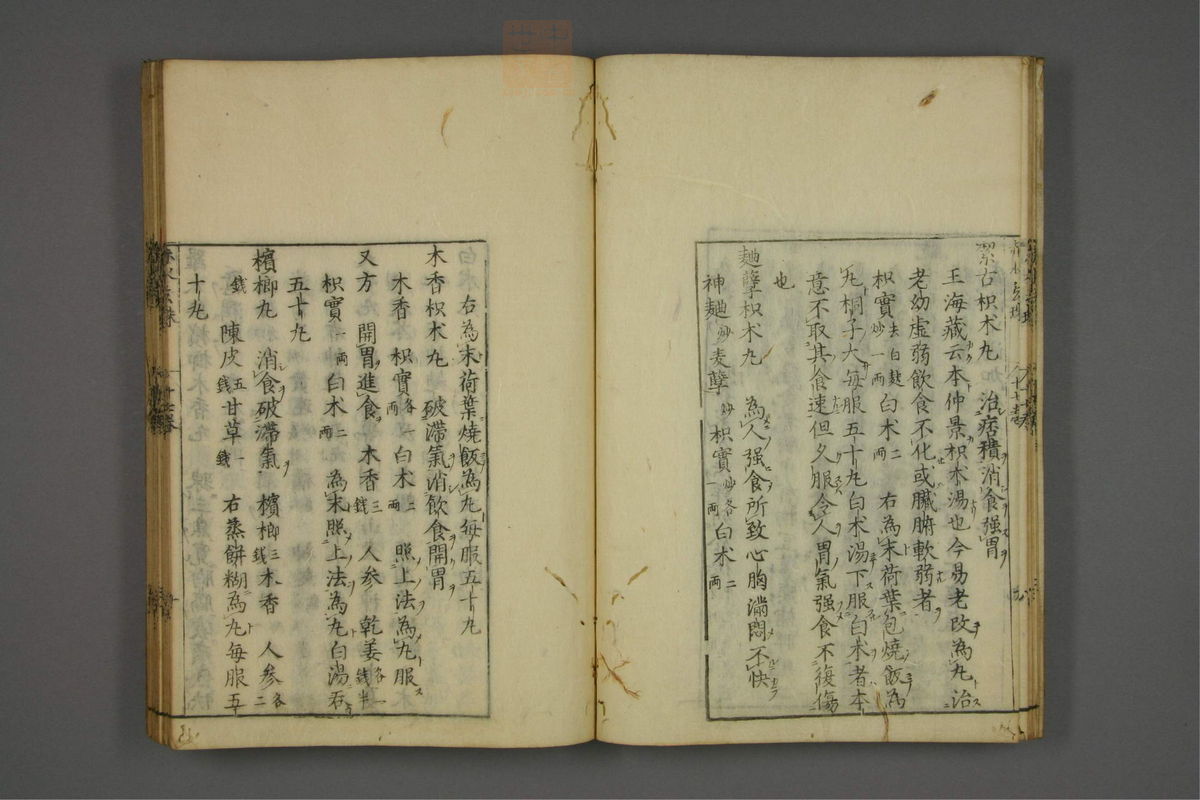 絜古枳术丸　治痞積消食强胃
王海藏云本仲景枳术湯也今易老改為丸治
老幼虛弱飲食不化或臓腑軟弱者
枳實去白麸炒一兩白术二兩　右為末荷葉包燒飯為
丸桐子大每服五十丸白术湯下服白术者本
意不取其食速但久服令人胃氣强食不復傷
也
麯孽枳术丸　為人强食所致心胸滿悶不快
神麯炒麦孽炒枳實炒各一兩白术二兩
右為末荷葉燒飯為丸每服五十丸
木香枳术丸　破滞氣消飲食開胃
木香　枳實各一兩白术二兩　照上法為丸服
又方　開胃進食　木香三錢　人參　乾姜各一錢半
枳實一兩白术二兩　為末照上法為丸白湯吞
五十丸
檳榔丸　消食破滞氣　檳榔三錢木香　人參各二
錢　陳皮五錢甘草一錢　右蒸餅糊為丸每服五
十丸